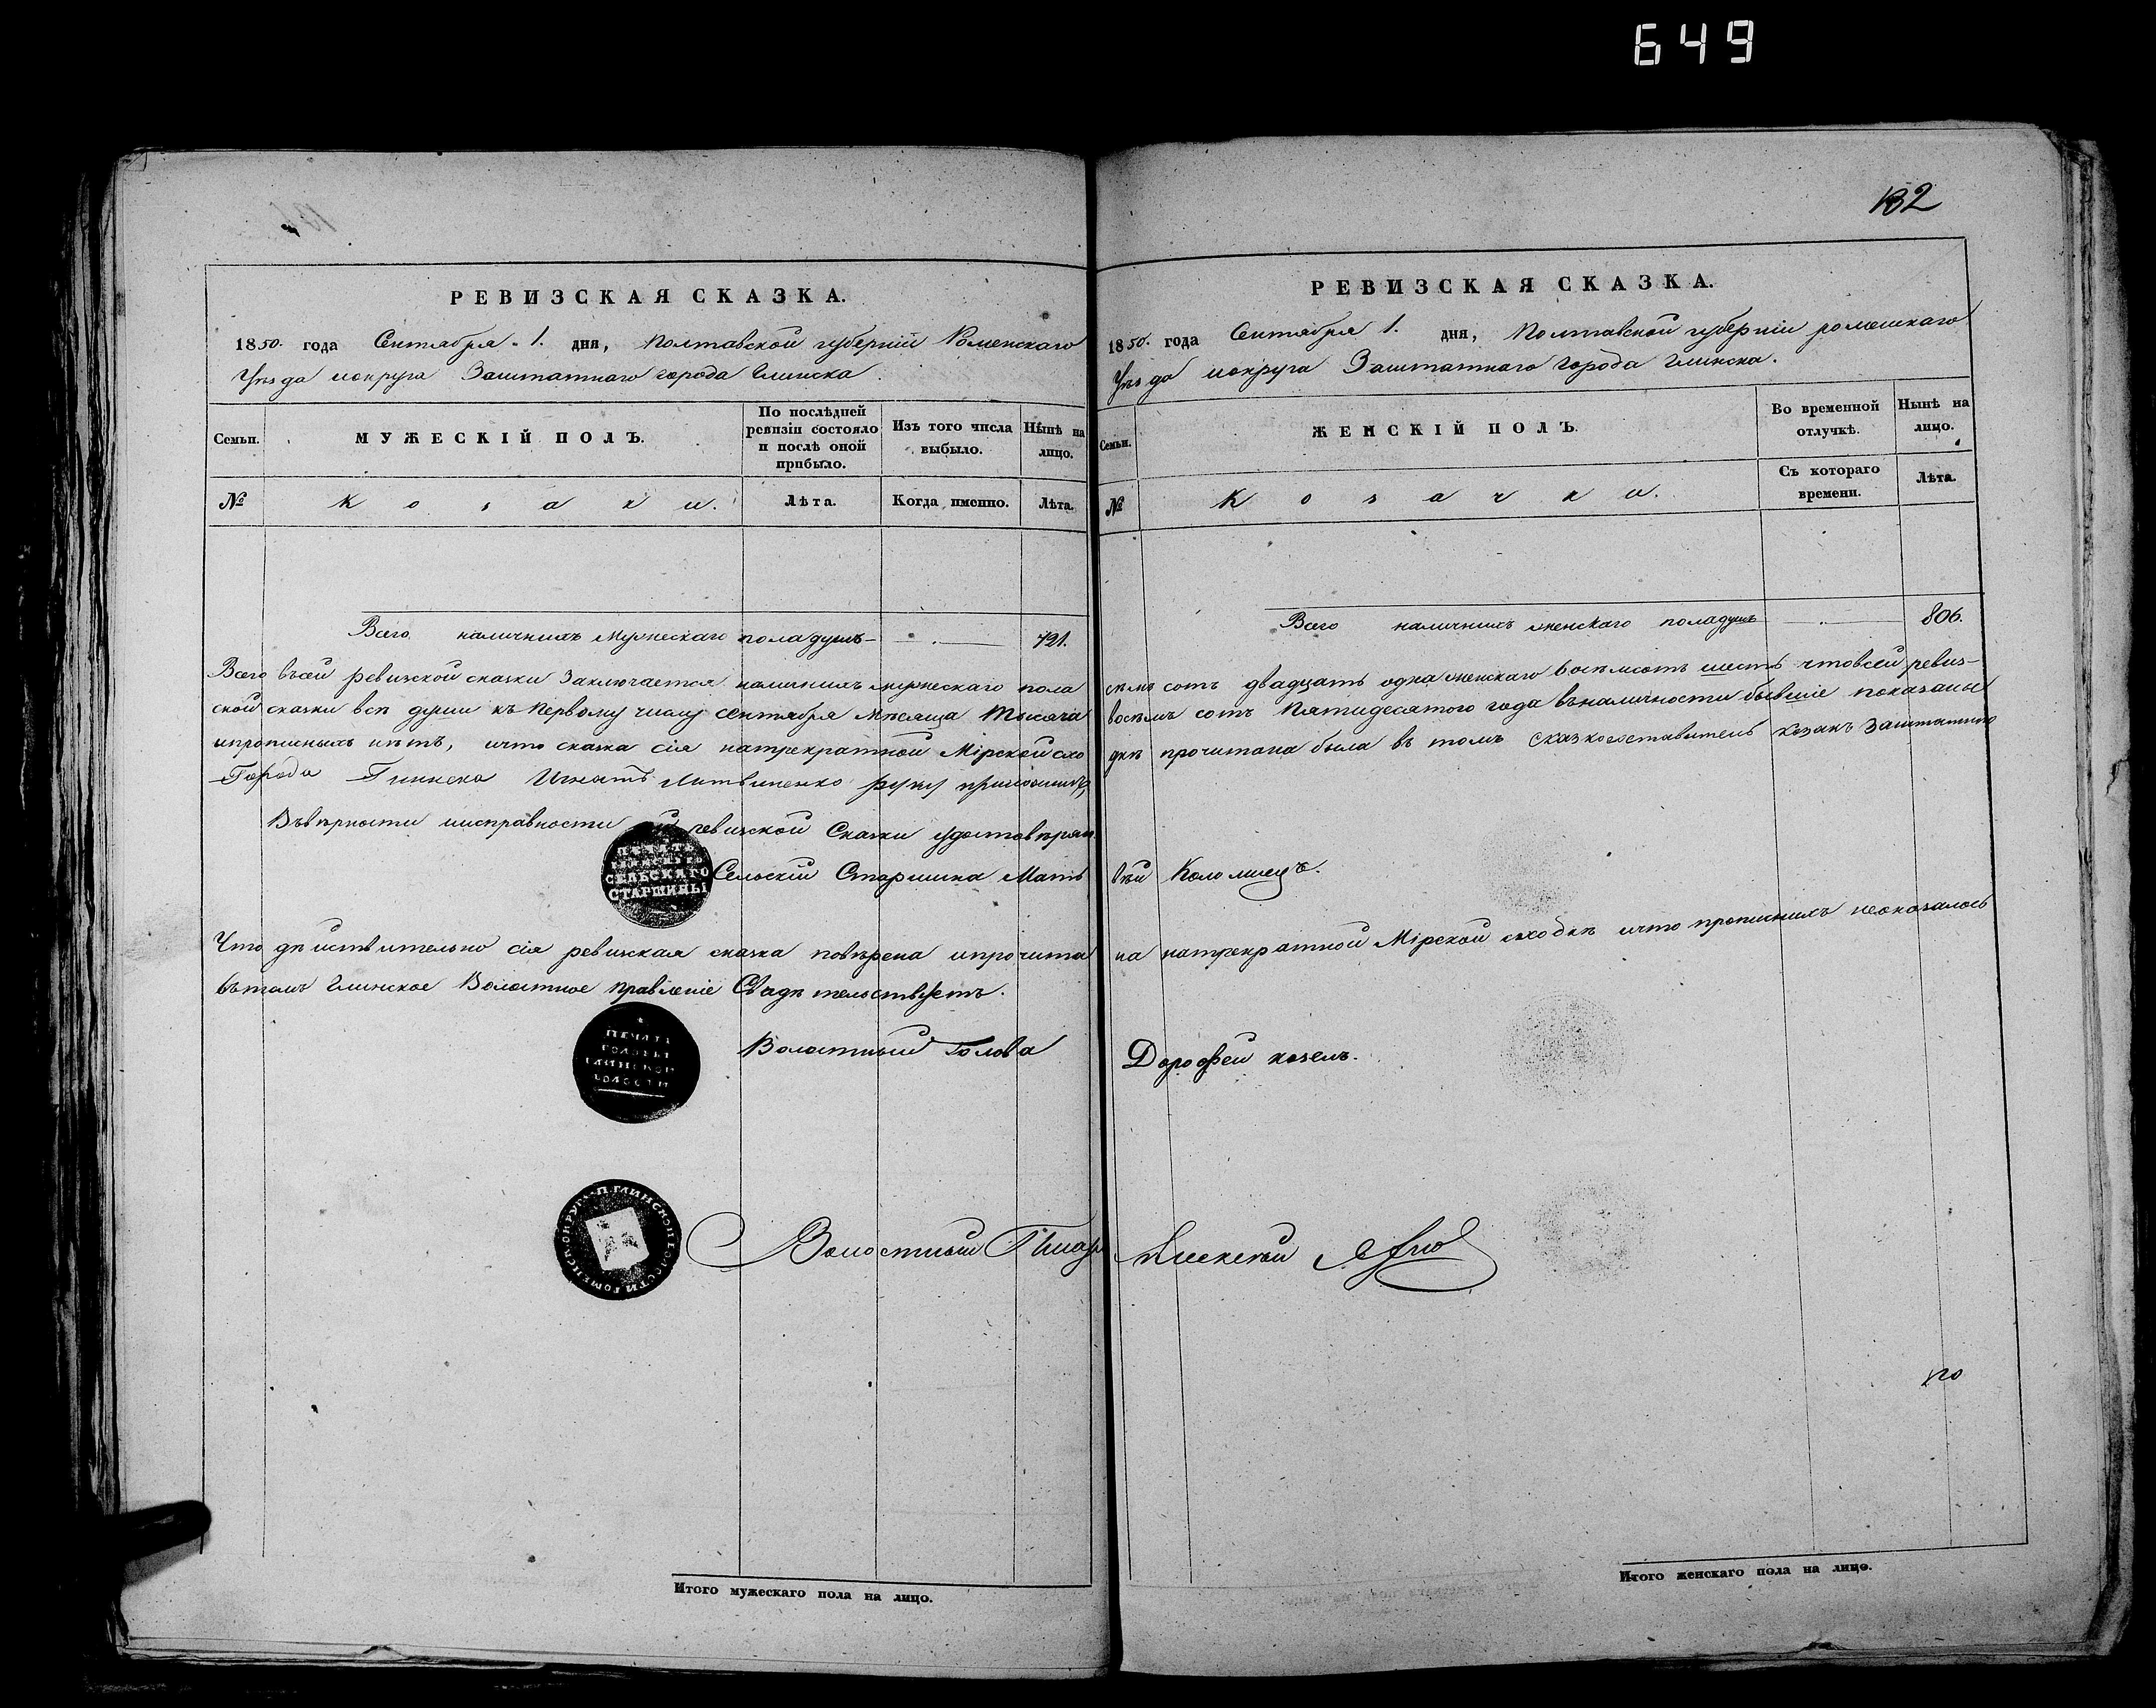 649
132
РЕВИЗСКАЯ СКАЗКА.
1850. года Сентября 1. дня, Полтавской губерніи Роменскаго
Уѣзда иокруга Заштатнаго города Глинска.
Семьи.
МУЖЕСКІЙ ПОЛЪ.
По послѣдней ревизіи состояло и послѣ оной прибыло.
Изъ того числа выбыло.
Нынѣ на лицо.
№
Козаки.
Лѣта.
Когда именно.
Лѣта.
Всего наличныхъ мужескаго пола душъ — 721.
Всего въсей ревизской сказки Заключается наличныхъ мужескаго пола
ской сказки всѣ души къ Первому числу сентября мѣсяца Тысяча
ипрописныхъ нѣтъ, ичто сказка сія натрекратной Мірской схо
Города Глинска Игнатъ Литвиненко руку приложилъ,
Въвѣрности иисправности сей ревизской Сказки удостовѣряю
ПЕЧАТЬ
СЕЛЬСКАГО
СТАРШИНЫ
Сельскій Старшина Мать
Что дѣйствительно сія ревизская сказка повѣрена ипрочита
вътомъ Глинское Волостное правленіе Свидѣтельствуетъ.
ПЕЧАТЬ
ГОЛОВЫ
ГЛИНСКОЙ
ВОЛОСТИ
Волостный Голова
П. ГЛИНСКОЙ ВОЛОСТИ РОМЕНСК. ОКРУГА
Волостный Писарь
Итого мужескаго пола на лицо.
РЕВИЗСКАЯ СКАЗКА.
1850. года Сентября 1. дня, Полтавской губерніи роменскаго
Уѣзда иокруга Заштатнаго города Глинска.
Семьи.
ЖЕНСКІЙ ПОЛЪ.
Во временной отлучкѣ.
Нынѣ на лицо.
№
Козачки.
Съ котораго времени.
Лѣта.
Всего наличныхъ женскаго пола душъ — 806.
семь сотъ двадцать одна женскаго восемьсотъ шесть чтовсей ревиз-
восемь сотъ Пятидесятого года въналичности бывшіе показаны
дкѣ прочитана была въ томъ сказкосоставитель козакъ Заштатного
вѣй Коломіецъ.
на натрекратной Мірской сходкѣ ичто прописныхъ неоказалось
Дорофей козелъ.
Алексѣй
Итого женскаго пола на лицо.